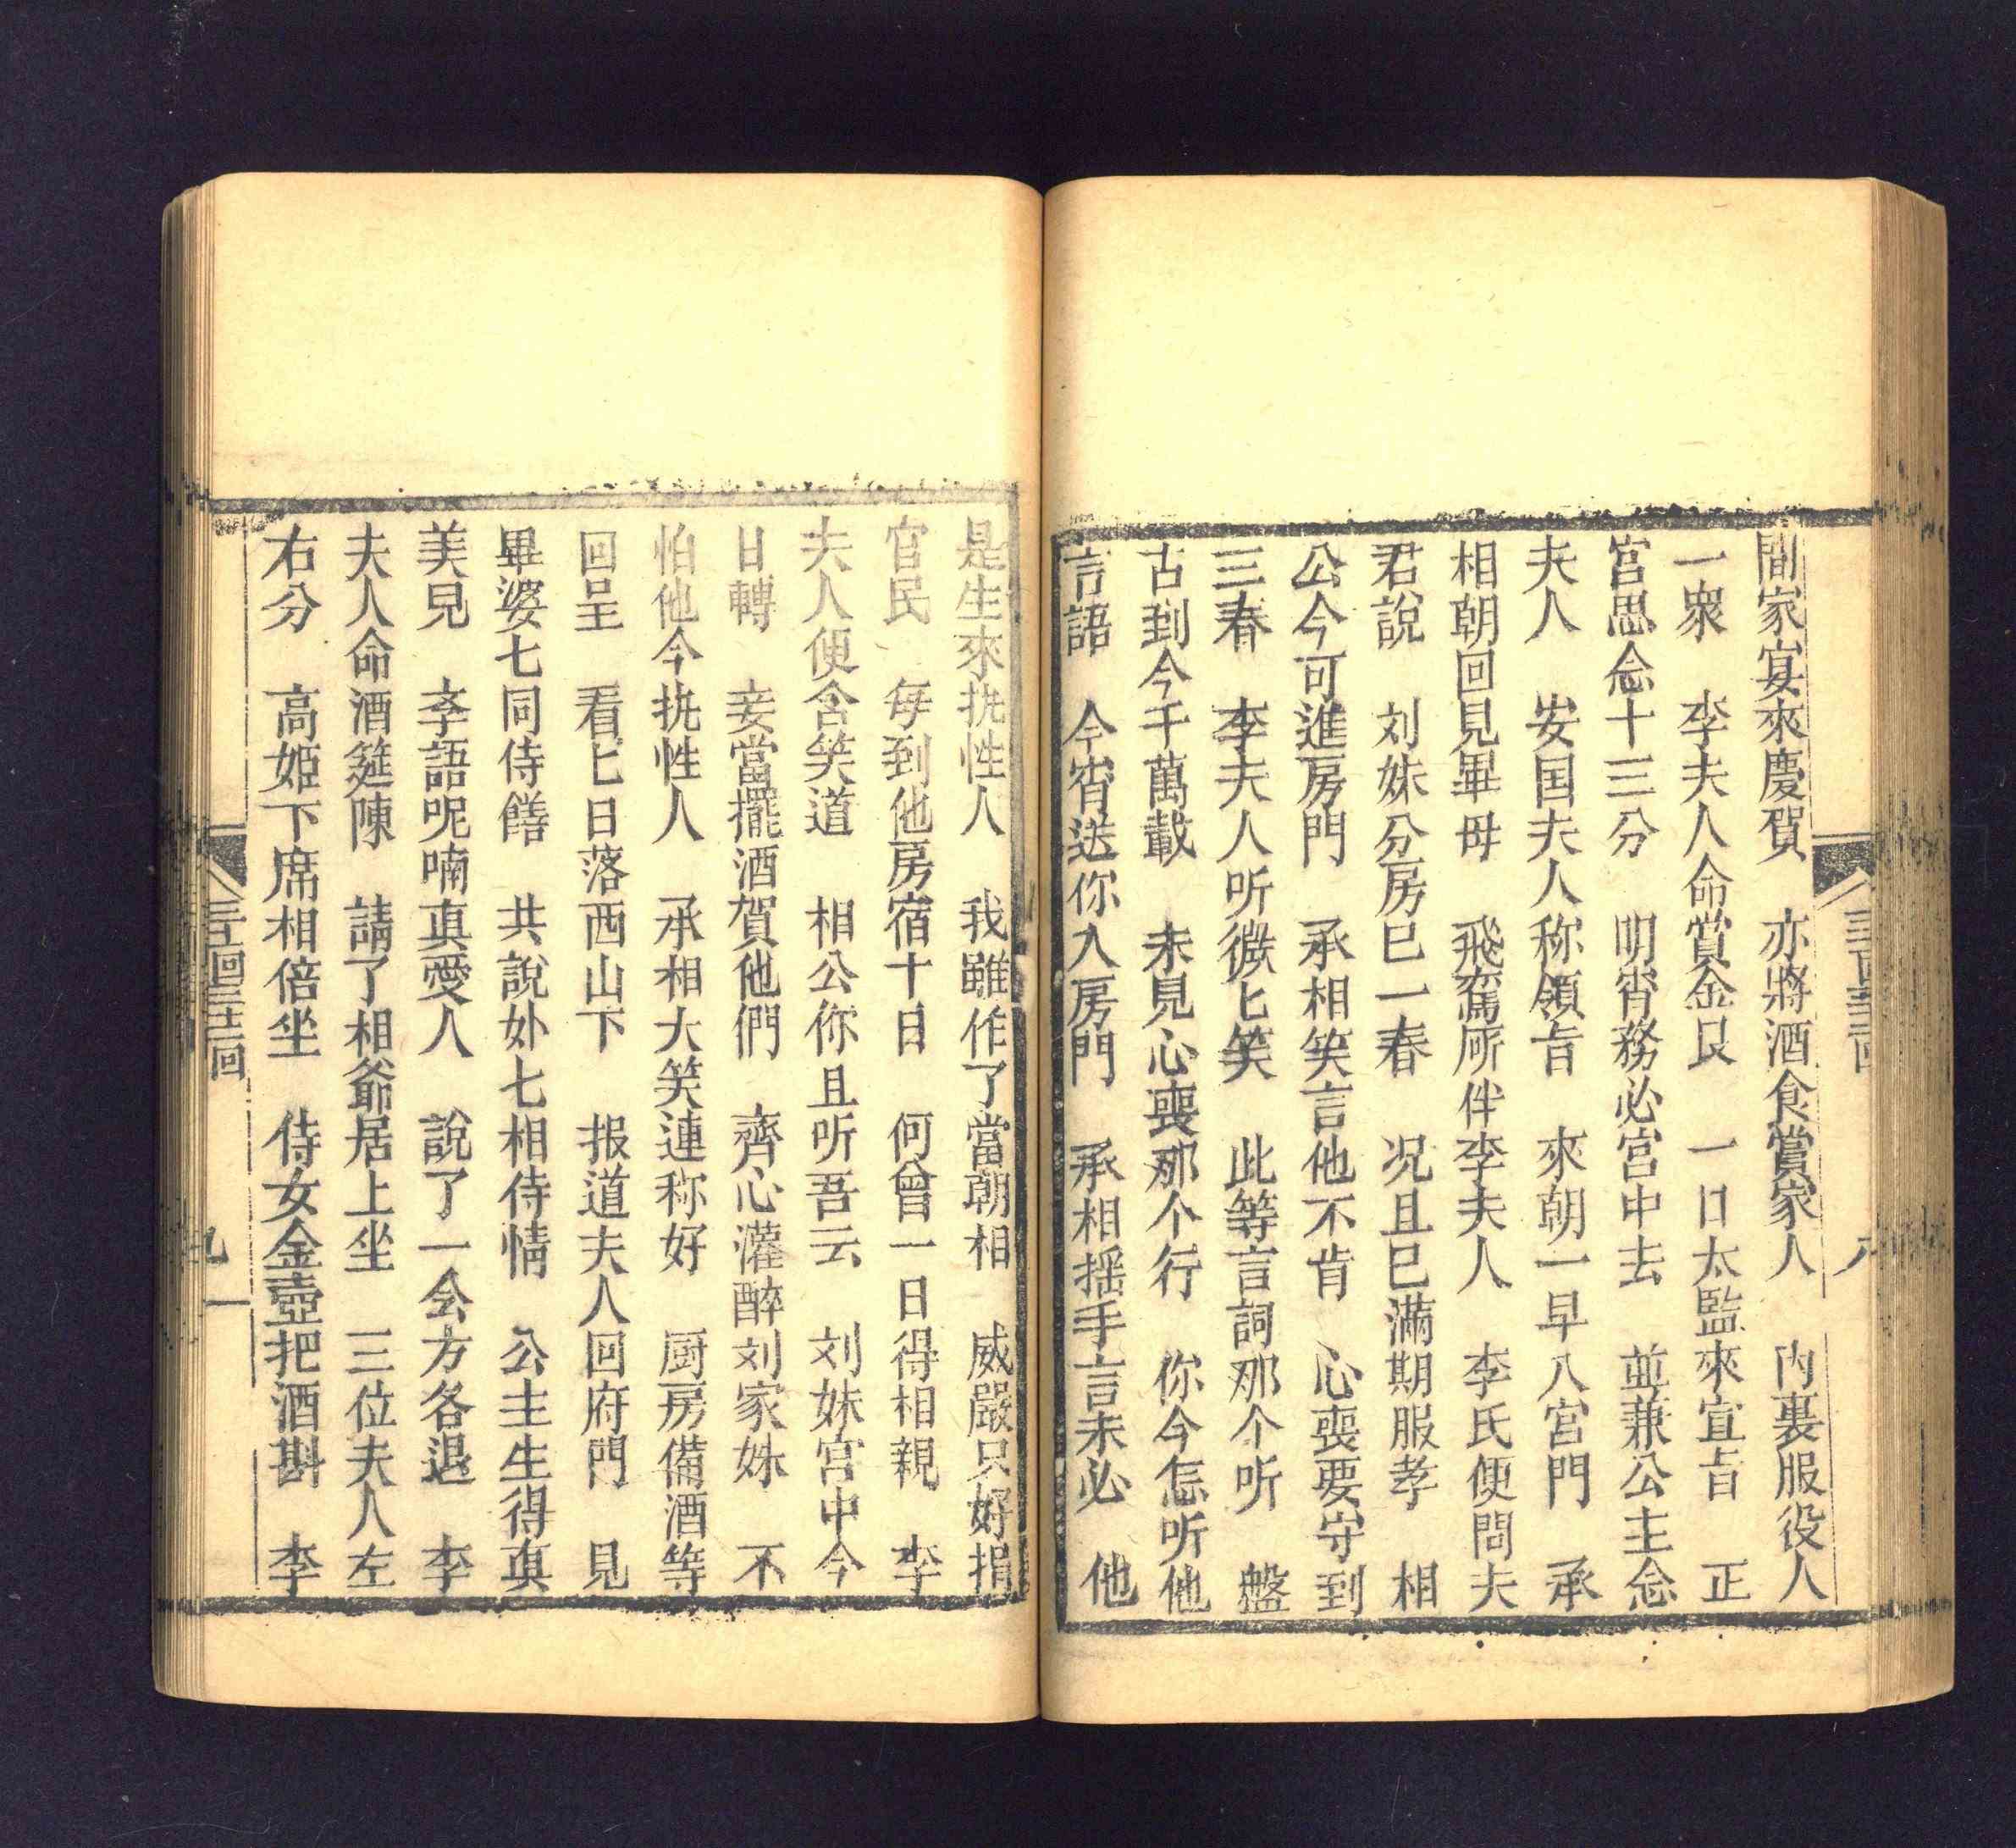 間家宴來慶賀　亦將酒食賞家人　內裏服役人
一衆　李夫人命賞金艮　一日太監來宣旨　正
宮思念十三分　明宵務必宮中去　並兼公主念
夫人　安国夫人称領旨　來朝一早入宮門　承
相朝回見畢母　飛鸞所伴李夫人　李氏便問夫
君說　刘妹分房已一春　况且已滿期服孝　相
公今可進房門　承相笑言他不肯　心喪要守到
三春　李夫人听微匕笑　此等言詞那个听　盤
古到今千萬載　未見心喪那个行　你今怎听他
言語　今宵送你入房門　承相摇手言未必　他
八
是生來执性人　我雖作了當朝相　威嚴只好捐
官民　每到他房宿十日　何曾一日得相親　李
夫人便含笑道　相公你且听吾云　刘妹宮中今
日轉　妾當擺酒賀他們　齊心灌醉刘家妹　不
怕他今执性人　承相大笑連称好　厨房備酒等
回呈　看匕日落西山下　报道夫人回府門　見
畢婆七同侍饍　共說外七相侍情　公主生得真
美見　李語呢喃真愛人　說了一会方各退　李
夫人命酒筵陳　請了相爺居上坐　三位夫人左
右分　高姬下席相倍坐　侍女金壺把酒斟　李
九